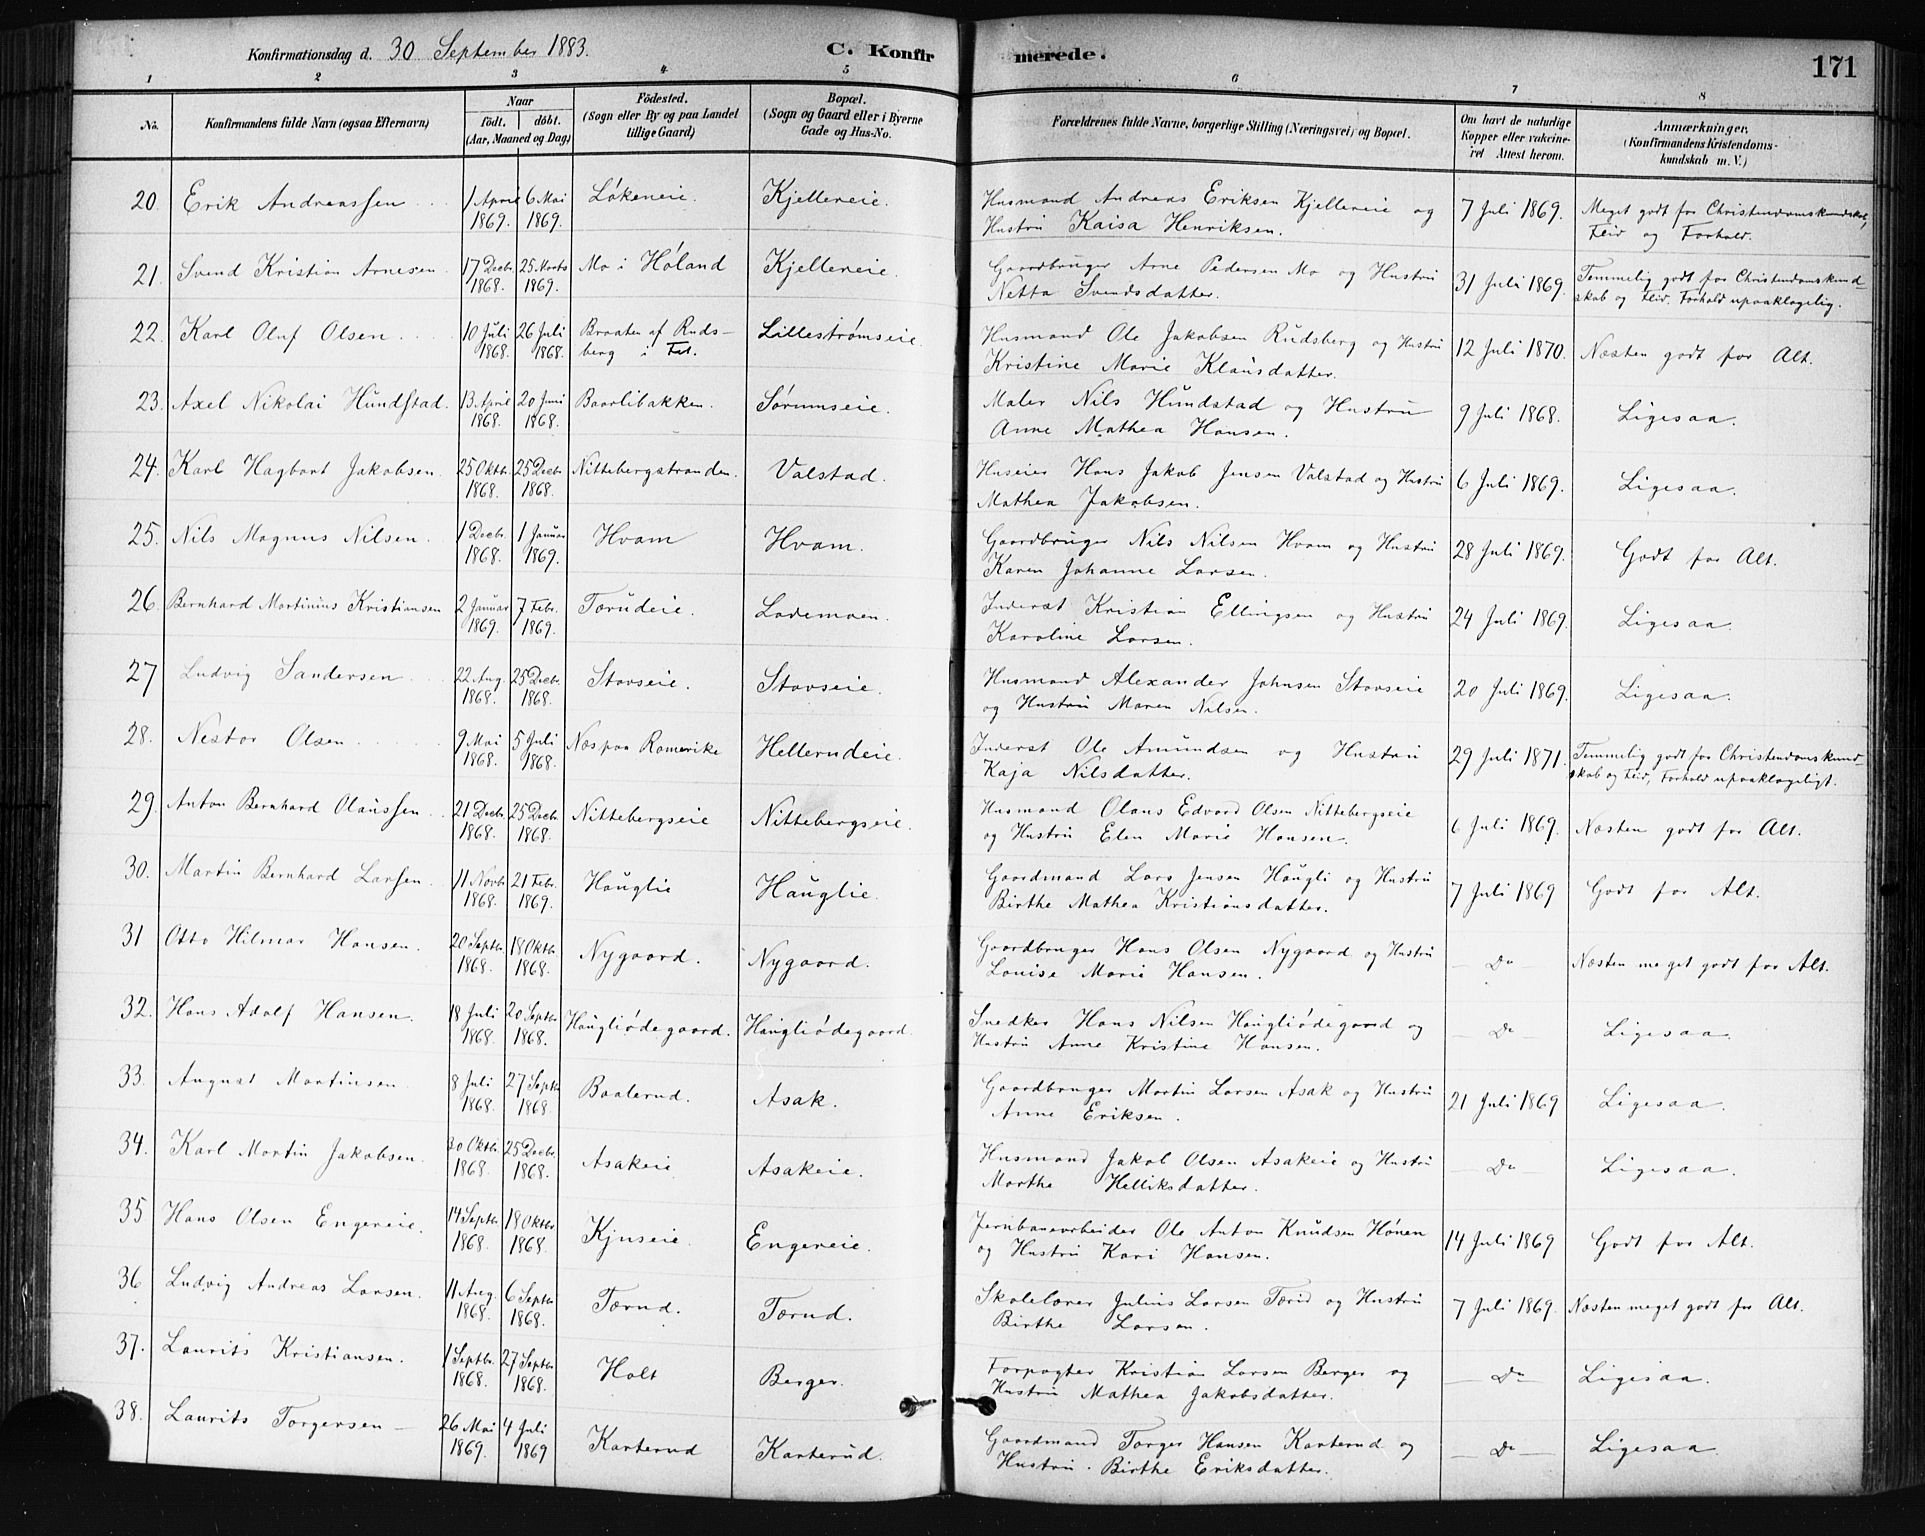 Konfirmationsdag d. 30 September 1883. C. Konfirmerede. 171
1 2 3 4 5 6 7 8
No. Konfirmandens fulde Navn (ogsaa Efternavn) Naar födt. döbt. (Aar, Maaned og Dag) Födested. (Sogn eller By og paa Landet tillige Gaard) Bopæl. (Sogn og Gaard eller i Byerne Gade og Hus-No. Forældrenes fulde Navne, borgerlige Stilling (Næringsvei) og Bopæl. Om havt de naturlige Kopper eller vakcineret Attest herom. Anmærkninger. (Konfirmandens Kristendomskundskab m. V.)
20. Erik Andreassen 1 April 1869. 6 Mai 1869. Løkeneie. Kjellereie. Husmand Andreas Eriksen Kjellereie og Hustru Kaisa Henriksen. 7 Juli 1869. Meget godt for Christendomskundskab, Flid og Forhold.
21. Svend Kristian Arnesen 17 Decbr. 1868. 25 Marts 1869. Mo i Høland Kjellereie. Gaardbruger Arne Pedersen Mo og Hustru Netta Svendsdatter. 31 Juli 1869. Temmelig godt for Christendomskundskab og Flid, Forhold upaaklagelig.
22. Karl Oluf Olsen 10 Juli 1868. 26 Juli 1868. Braaten af Rudsberg i Fet. Lillestrømseie Husmand Ole Jakobsen Rudsberg og Hustru Kristine Marie Klausdatter. 12 Juli 1870. Næsten godt for Alt.
23. Axel Nikolai Hundstad. 13 April 1868. 20 Juni 1868. Baarlibakken. Sørumseie. Maler Nils Hundstad og Hustru Anne Mathea Hansen. 9 Juli 1868. Ligesaa.
24. Karl Hagbart Jakobsen. 25 Oktbr. 1868. 25 Decbr. 1868. Nittebergstranden. Valstad. Huseier Hans Jakob Jensen Valstad og Hustru Mathea Jakobsen. 6 Juli 1869. Ligesaa.
25. Nils Magnus Nilsen. 1 Decbr. 1868. 1 Januar 1869. Hvam Hvam. Gaardbruger Nils Nilsen Hvam og Hustru Karen Johanne Larsen. 28 Juli 1869. Godt for Alt.
26. Bernhard Martinius Kristiansen 2 Januar 1869. 7 Febr. 1869. Tærudeie. Lademoen. Inderst Kristian Ellingsen og Hustru Karoline Larsen. 24 Juli 1869. Ligesaa.
27 Ludvig Sandersen 22 Aug. 1868. 25 Decbr. 1868. Stavseie. Stavseie. Husmand Alexander Johnsen Stavseie og Hustru Maren Nilsen. 20 Juli 1869. Ligesaa.
28. Nestor Olsen 9 Mai 1868. 5 Juli 1868. Næs paa Romerike Hellerudeie. Inderst Ole Amundsen og Hustru Kaja Nilsdatter. 29 Juli 1871. Temmelig godt for Christendomskundskab og Flid, Forhold upaaklageligt.
29. Anton Bernhard Olaussen 21 Decbr. 1868. 25 Decbr. 1868. Nittebergseie Nittebergseie. Husmand Olaus Edvard Olsen Nittebergseie og Hustru Elen Marie Hansen. 6 Juli 1869. Næsten godt for Alt.
30. Martin Bernhard Larsen. 11 Novbr. 1868. 21 Febr. 1869. Hauglie Hauglie. Gaardmand Lars Jensen Haugli og Hustru Birthe Mathea Kristiansdatter. 7 Juli 1869 Godt for Alt.
31 Otto Hilmar Hansen. 20 Septbr. 1868. 18 Oktbr. 1868. Nygaard. Nygaard. Gaardbruger Hans Olsen Nygaard og Hustru Louise Marie Hansen. — Do — Næsten meget godt for Alt.
32. Hans Adolf Hansen. 18 Juli 1868. 20 Septbr 1868. Haugliødegaard. Haugliødegaard. Snedker Hans Nilsen Haugliødegaard og Hustru Anne Kristine Hansen. — Do — Ligesaa.
33. August Martinsen 8 Juli 1868. 27 Septbr 1868. Baalerud. Asak. Gaardbruger Martin Larsen Asak og Hustru Anne Eriksen. 21 Juli 1869 Ligesaa.
34. Karl Martin Jakobsen. 30 Oktbr. 1868. 25 Decbr. 1868. Asakeie Asakeie. Husmand Jakob Olsen Asakeie og Hustru Marthe Helliksdatter. — Do — Ligesaa.
35 Hans Olsen Engereie. 14 Septbr. 1868. 18 Oktbr. 1868. Kjuseie. Engereie. Jernbanearbeider Ole Anton Knudsen Hønen og Hustru Kari Hansen. 14 Juli 1869 Godt for Alt.
36 Ludvig Andreas Larsen. 11 Aug. 1868. 6 Septbr 1868. Tærud. Tærud. Skolelærer Julius Larsen Tærud og Hustru Birthe Larsen. 7 Juli 1869. Næsten meget godt for Alt.
37. Laurits Kristiansen. 1 Septbr. 1868. 27 Septbr 1868. Holt Berger. Forpagter Kristian Larsen Berger og Hustru Mathea Jakobsdatter. — Do — Ligesaa.
38. Laurits Torgersen — 26 Mai 1869. 4 Juli 1869 Karterud Karterud. Gaardmand Torger Hansen Karterud og Hustru Birthe Eriksdatter. — Do — Ligesaa.